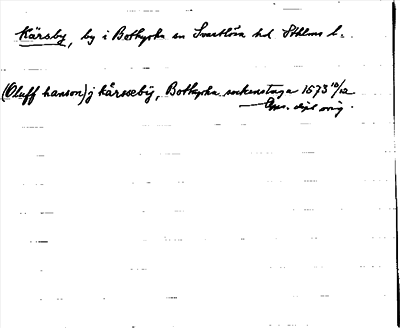 Kärsby, by i Botkyrka sn Svartlösa hd Sthlms l.
(Oluff hanson) j kårssebÿ, Botkyrka sockenstuga 1673 10/12
Perg. dipl orig.